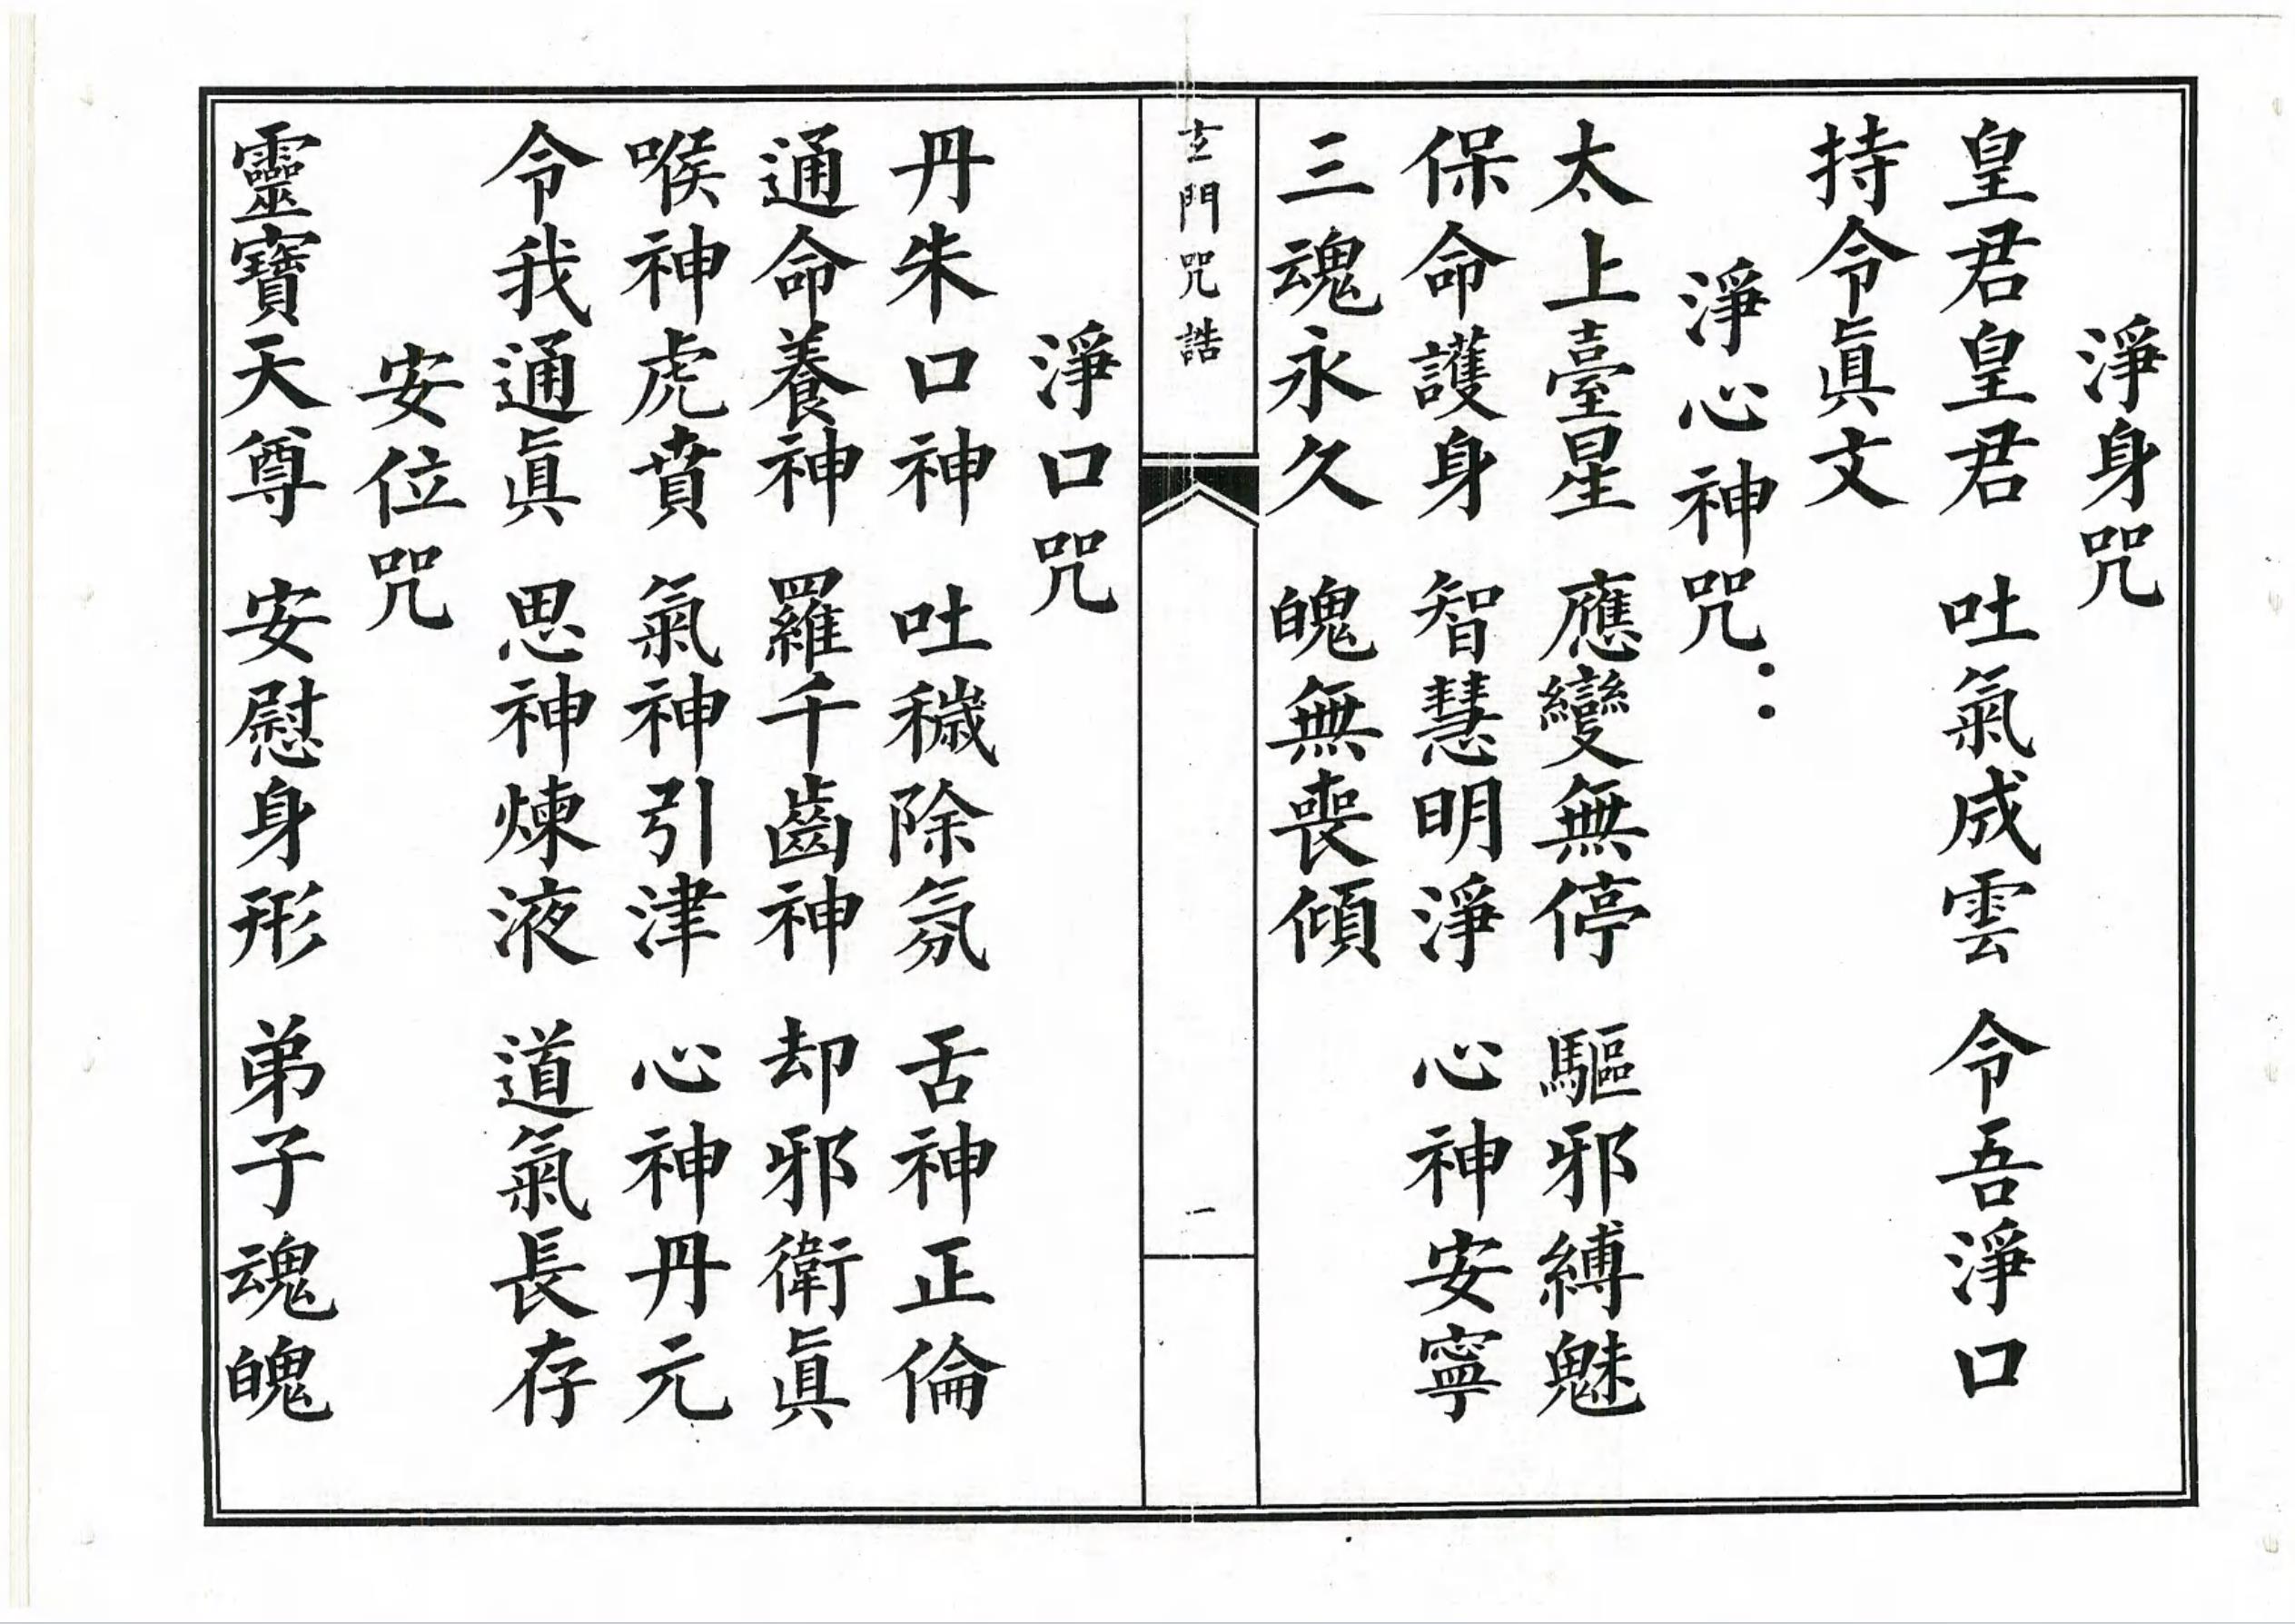 淨身咒
皇君皇君 吐氣成雲 令吾淨口
持令眞文
淨心神咒：
太上臺星 應變無停 驅邪縛魅
保命護身 智慧明淨 心神安寧
三魂永久 魄無喪傾
玄門咒誥
一
淨口咒
丹朱口神 吐穢除氛 舌神正倫
通命養神 羅千齒神 却邪衛眞
喉神虎賁 氣神引津 心神丹元
令我通眞 思神煉液 道氣長存
安位咒
靈寶天尊 安慰身形 弟子魂魄